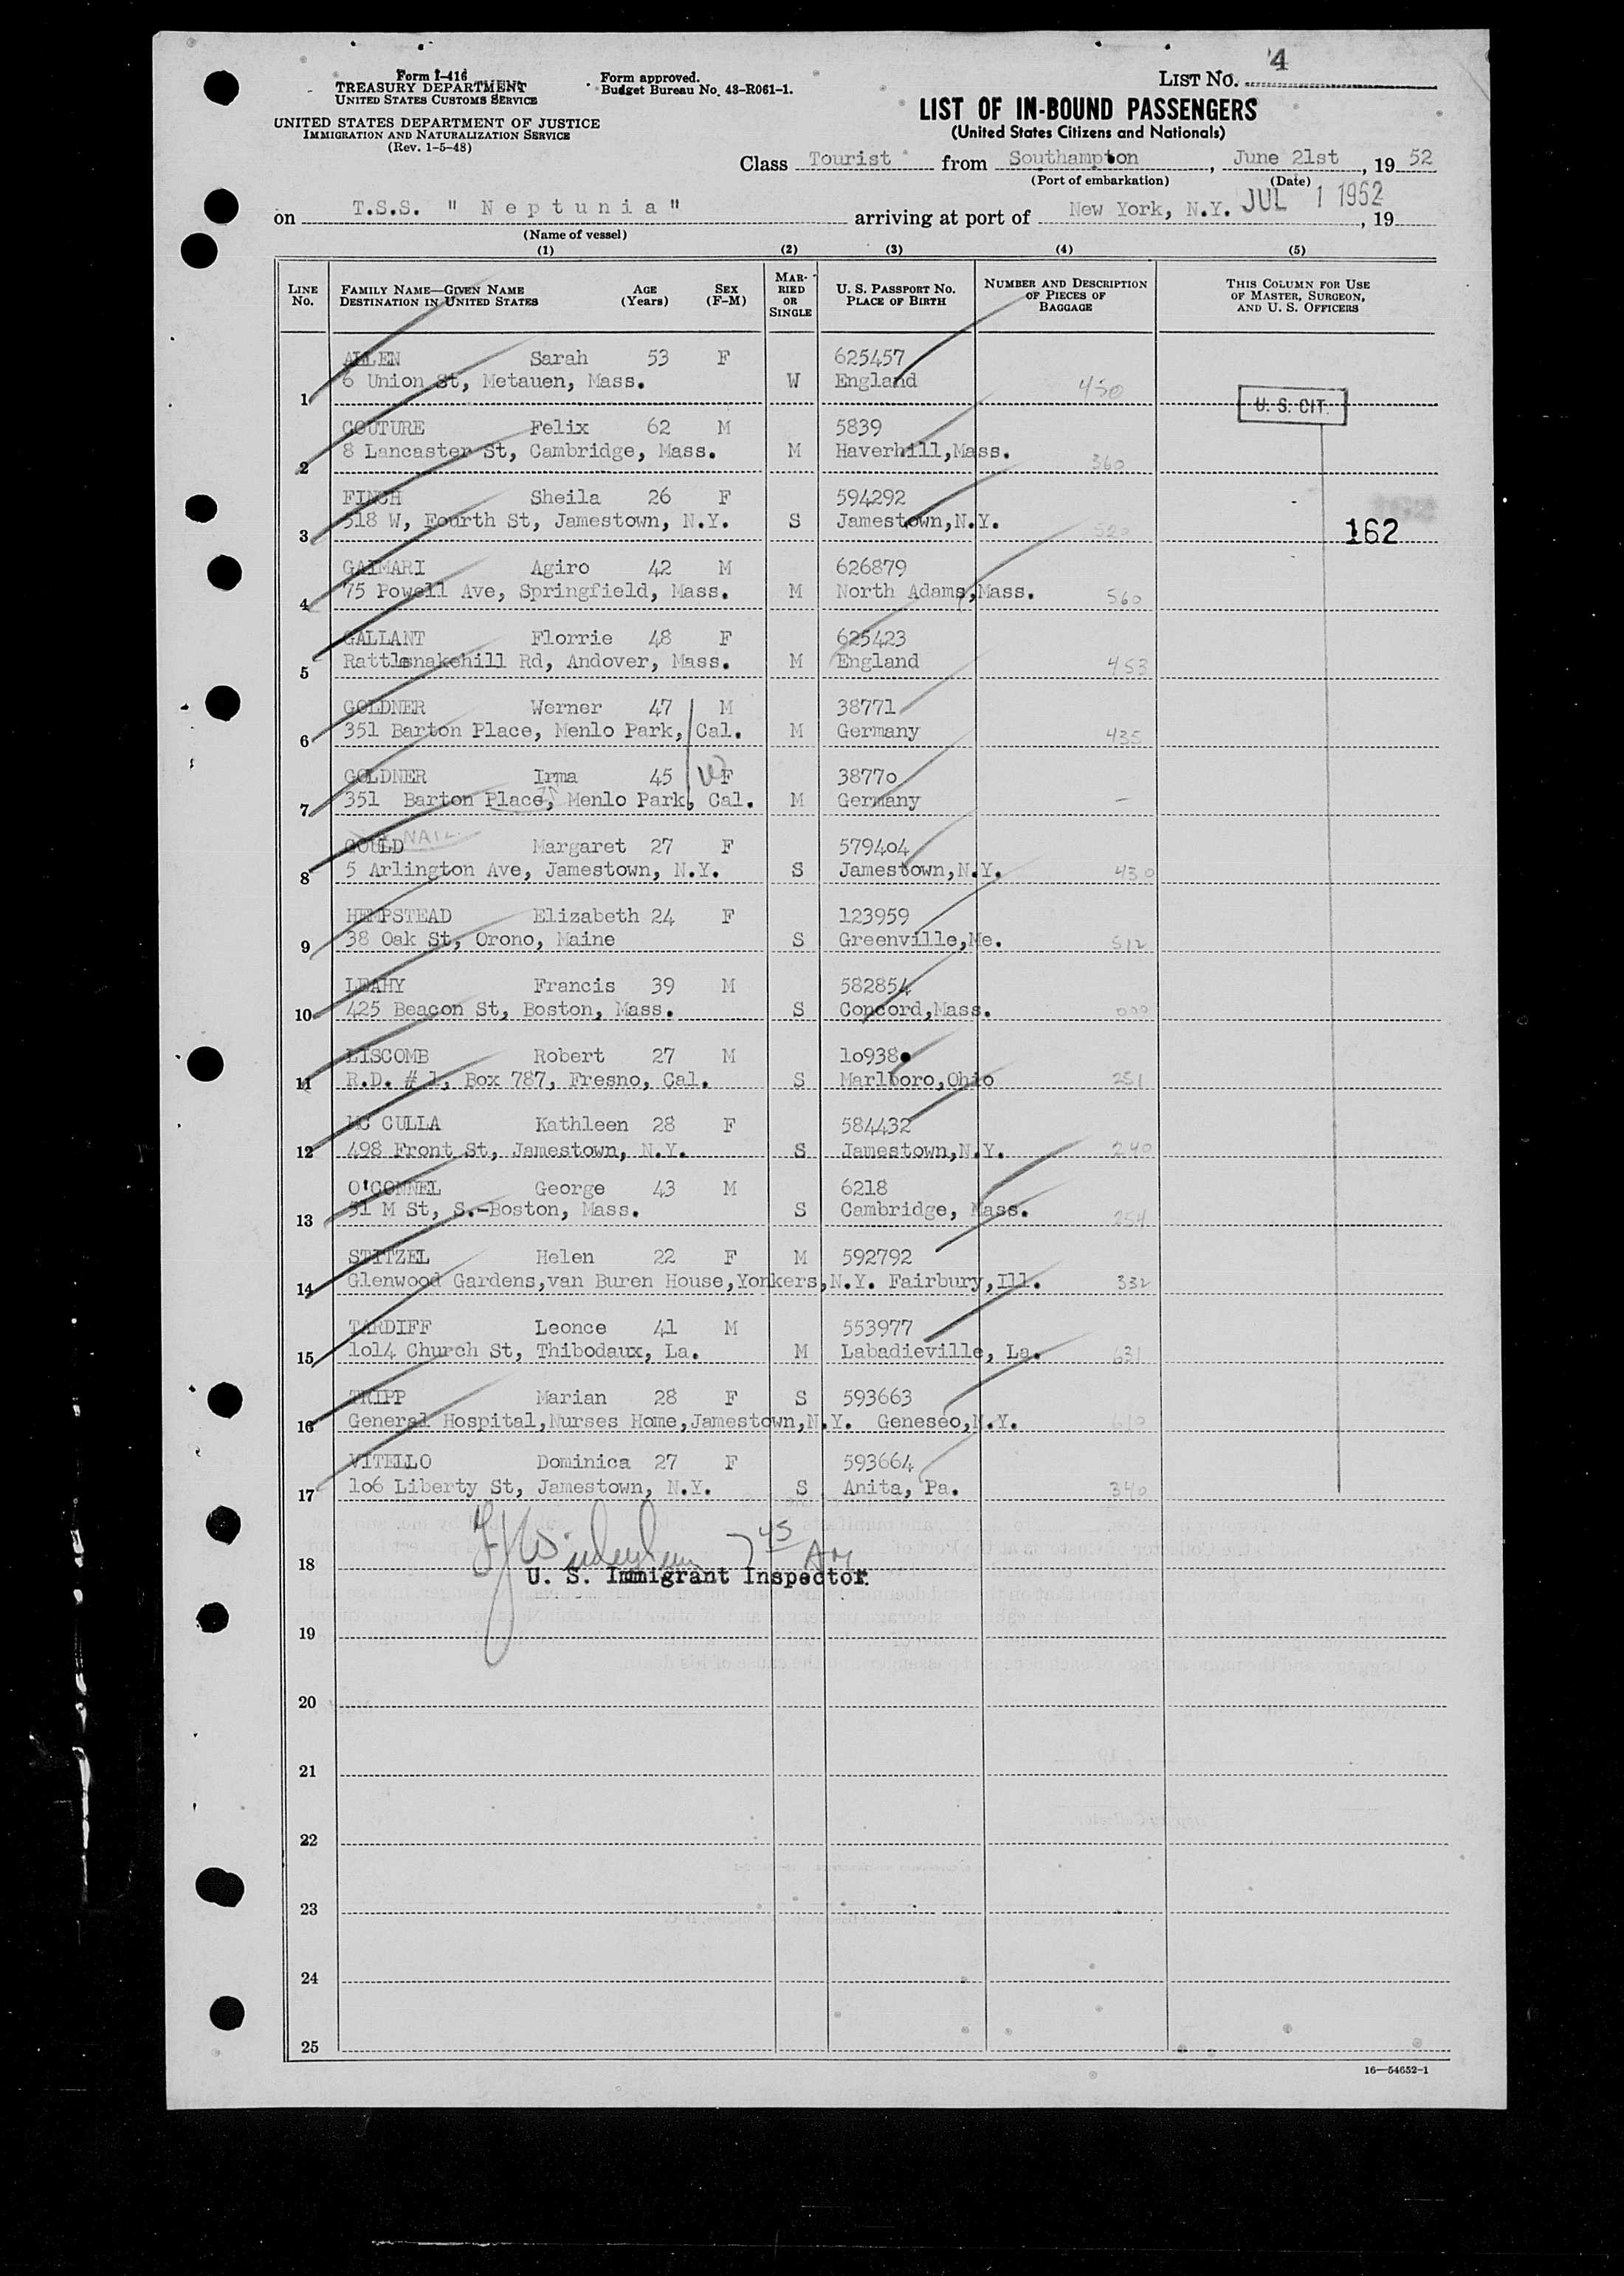 4
LIST NO.
Form I-416
TREASURY DEPARTMENT
UNITED STATES CUSTOMS SERVICE
Form approved.
Budget Bureau No. 43-R061-1.
UNITED STATES DEPARTMENT OF JUSTICE
IMMIGRATION AND NATURALIZATION SERVICE
(Rev. 1-5-48)
LIST OF IN-BOUND PASSENGERS
(United States Citizens and Nationals)
Class Tourist from Southampton, June 21st, 19 52
(Port of embarkation) (Date)
on T.S.S. " Neptunia" arriving at port of New York, N.Y. JUL 1 1952, 19
(Name of vessel)
(1) (2) (3) (4) (5)
LINE No. FAMILY NAME—GIVEN NAME DESTINATION IN UNITED STATES AGE (Years) SEX (F-M) MARRIED OR SINGLE U. S. PASSPORT NO. PLACE OF BIRTH NUMBER AND DESCRIPTION OF PIECES OF BAGGAGE THIS COLUMN FOR USE OF MASTER, SURGEON, AND U. S. OFFICERS
ALLEN Sarah 53 F 625457
1 6 Union St, Metauen, Mass. W England 450
U. S. CIT.
COUTURE Felix 62 M 5839
2 8 Lancaster St, Cambridge, Mass. M Haverhill,Mass. 360
FINCH Sheila 26 F 594292
3 518 W, Fourth St, Jamestown, N.Y. S Jamestown,N.Y. 520
162
GAIMARI Agiro 42 M 626879
4 75 Powell Ave, Springfield, Mass. M North Adams,Mass. 560
GALLANT Florrie 48 F 625423
5 Rattlesnakehill Rd, Andover, Mass. M England 453
GOLDNER Werner 47 M 38771
6 351 Barton Place, Menlo Park, Cal. M Germany 435
GOLDNER Irma 45 F 38770
7 351 Barton Place, Menlo Park, Cal. M Germany —
GOULD Margaret 27 F 579404
8 5 Arlington Ave, Jamestown, N.Y. S Jamestown,N.Y. 430
HEMPSTEAD Elizabeth 24 F 123959
9 38 Oak St, Orono, Maine S Greenville,Me. 512
LEAHY Francis 39 M 582854
10 425 Beacon St, Boston, Mass. S Concord,Mass. 000
LISCOMB Robert 27 M 10938
11 R.D. # 1, Box 787, Fresno, Cal. S Marlboro,Ohio 251
MC CULLA Kathleen 28 F 584432
12 498 Front St, Jamestown, N.Y. S Jamestown,N.Y. 240
O'CONNEL George 43 M 6218
13 51 M St, S.-Boston, Mass. S Cambridge, Mass. 254
STITZEL Helen 22 F M 592792
14 Glenwood Gardens,van Buren House,Yonkers,N.Y. Fairbury,Ill. 332
TARDIFF Leonce 41 M 553977
15 1014 Church St, Thibodaux, La. M Labadieville, La. 631
TRIPP Marian 28 F S 593663
16 General Hospital,Nurses Home,Jamestown,N.Y. Geneseo,N.Y. 610
VITELLO Dominica 27 F 593664
17 106 Liberty St, Jamestown, N.Y. S Anita, Pa. 340
7 45 AM
18
U. S. Immigrant Inspector.
19
20
21
22
23
24
25
16—54652-1